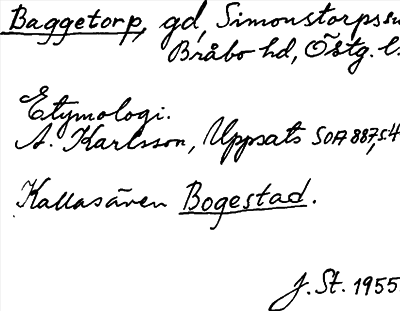 Baggetorp, gd, Simonstorps sn
Bråbo hd, Östg. l.
Etymologi.
A. Karlsson, Uppsats SOA 887, s. 4
Kallas även Bogestad.
J. St. 1955